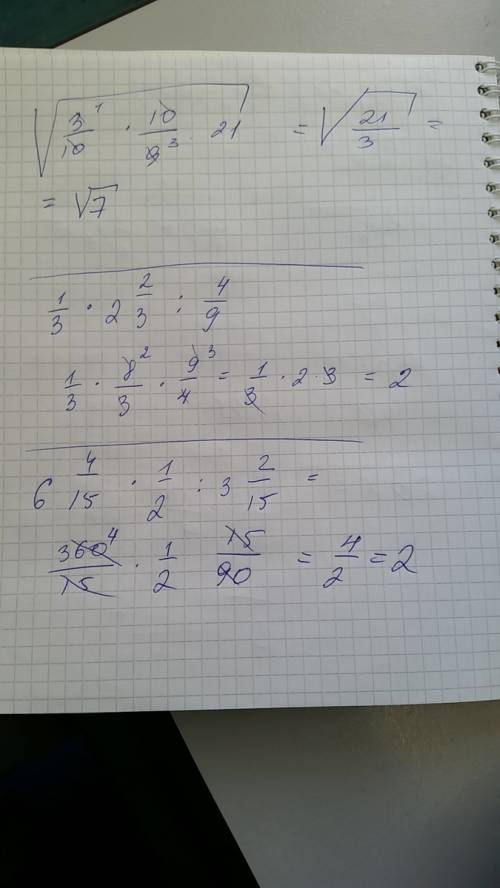 √(3¹/10 · 10/9³ · 21) = √(21/3) =
= √7
1/3 · 2 2/3 : 4/9
1/3 · 8²/3 · 9³/4 = 1/3 · 2 · 3 = 2
6 4/15 · 1/2 : 3 2/15 =
360⁴/15 · 1/2 15/90 = 4/2 = 2